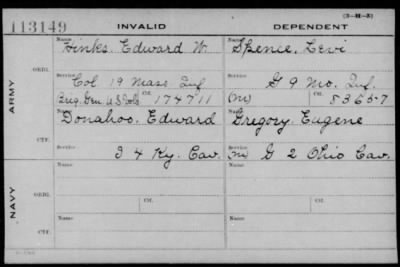 113149 INVALID DEPENDENT (3-M-3)
Name Hinks, Edward W. Name Spence, Levi
ORIG.
Service Col. 19 Mass. Inf. Service G 9 Mo. Inf.
Brig. Gen. U.S. Vols Ctf. 174711 (M) Ctf.
ARMY
Name Donahoo, Edward Name Gregory, Eugene
CTF.
Service I 4 Ky. Cav. Service (M) G 2 Ohio Cav.
Name Name
ORIG.
Service Ctf. Service Ctf.
NAVY
Name Name
CTF.